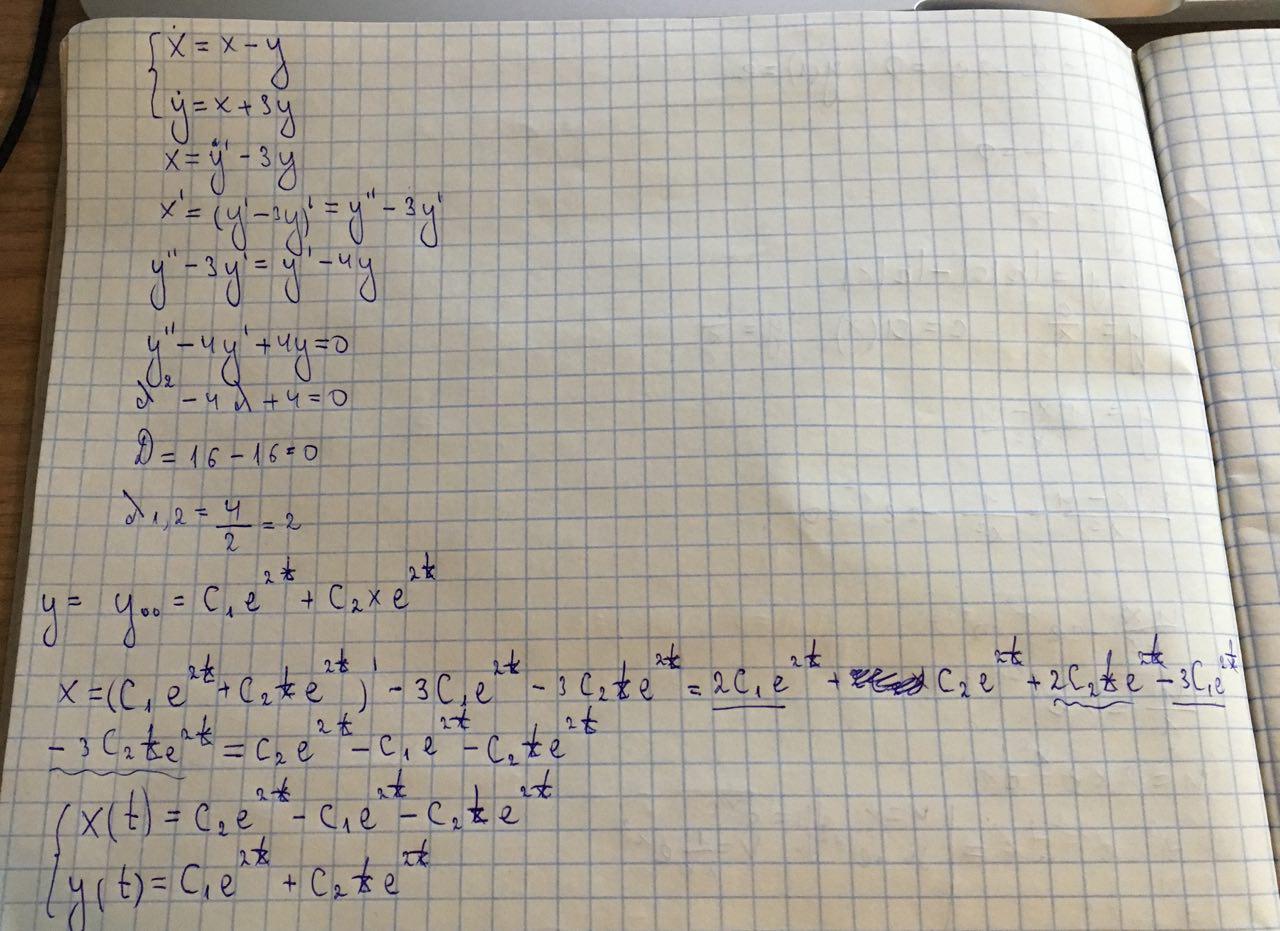 { ẋ = x - y
ẏ = x + 3y
x = y' - 3y
x' = (y' - 3y)' = y'' - 3y'
y'' - 3y' = y' - 4y
y'' - 4y' + 4y = 0
λ² - 4λ + 4 = 0
D = 16 - 16 = 0
λ₁,₂ = 4/2 = 2
y = y₀₀ = C₁e^{2t} + C₂xe^{2t}
x = (C₁e^{2t} + C₂te^{2t})' - 3C₁e^{2t} - 3C₂te^{2t} = 2C₁e^{2t} + C₂e^{2t} + 2C₂te^{2t} - 3C₁e^{2t}
- 3C₂te^{2t} = C₂e^{2t} - C₁e^{2t} - C₂te^{2t}
{ x(t) = C₂e^{2t} - C₁e^{2t} - C₂te^{2t}
y(t) = C₁e^{2t} + C₂te^{2t}